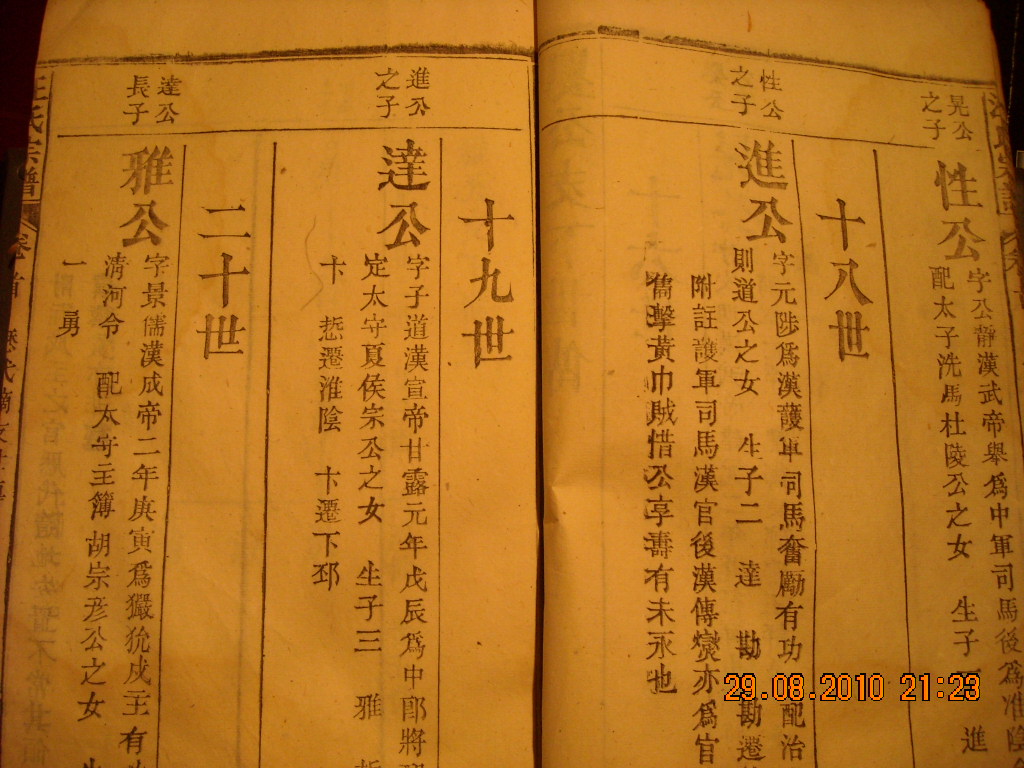 晃公
之子
性公
字公靜漢武帝舉爲中軍司馬後爲淮陰
配太子洗馬杜陵公之女 生子一 進
十八世
性公
之子
進公
字元陟爲漢護軍司馬奮勵有功 配治
則道公之女 生子二 達 勘 勘遷
附註護軍司馬漢官後漢傳燮亦爲官
儁擊黃巾賊惜公享壽有未永也
十九世
進公
之子
達公
字子道漢宣帝甘露元年戊辰爲中郎將
定太守夏侯宗公之女 生子三 雅
卞 惁遷淮陰 卞遷下邳
二十世
達公
長子
雅公
字景儒漢成帝二年庚寅爲玁狁戍主有
清河令 配太守主簿胡宗彥公之女
一 勇
汪氏宗譜 卷首
29.08.2010 21:23